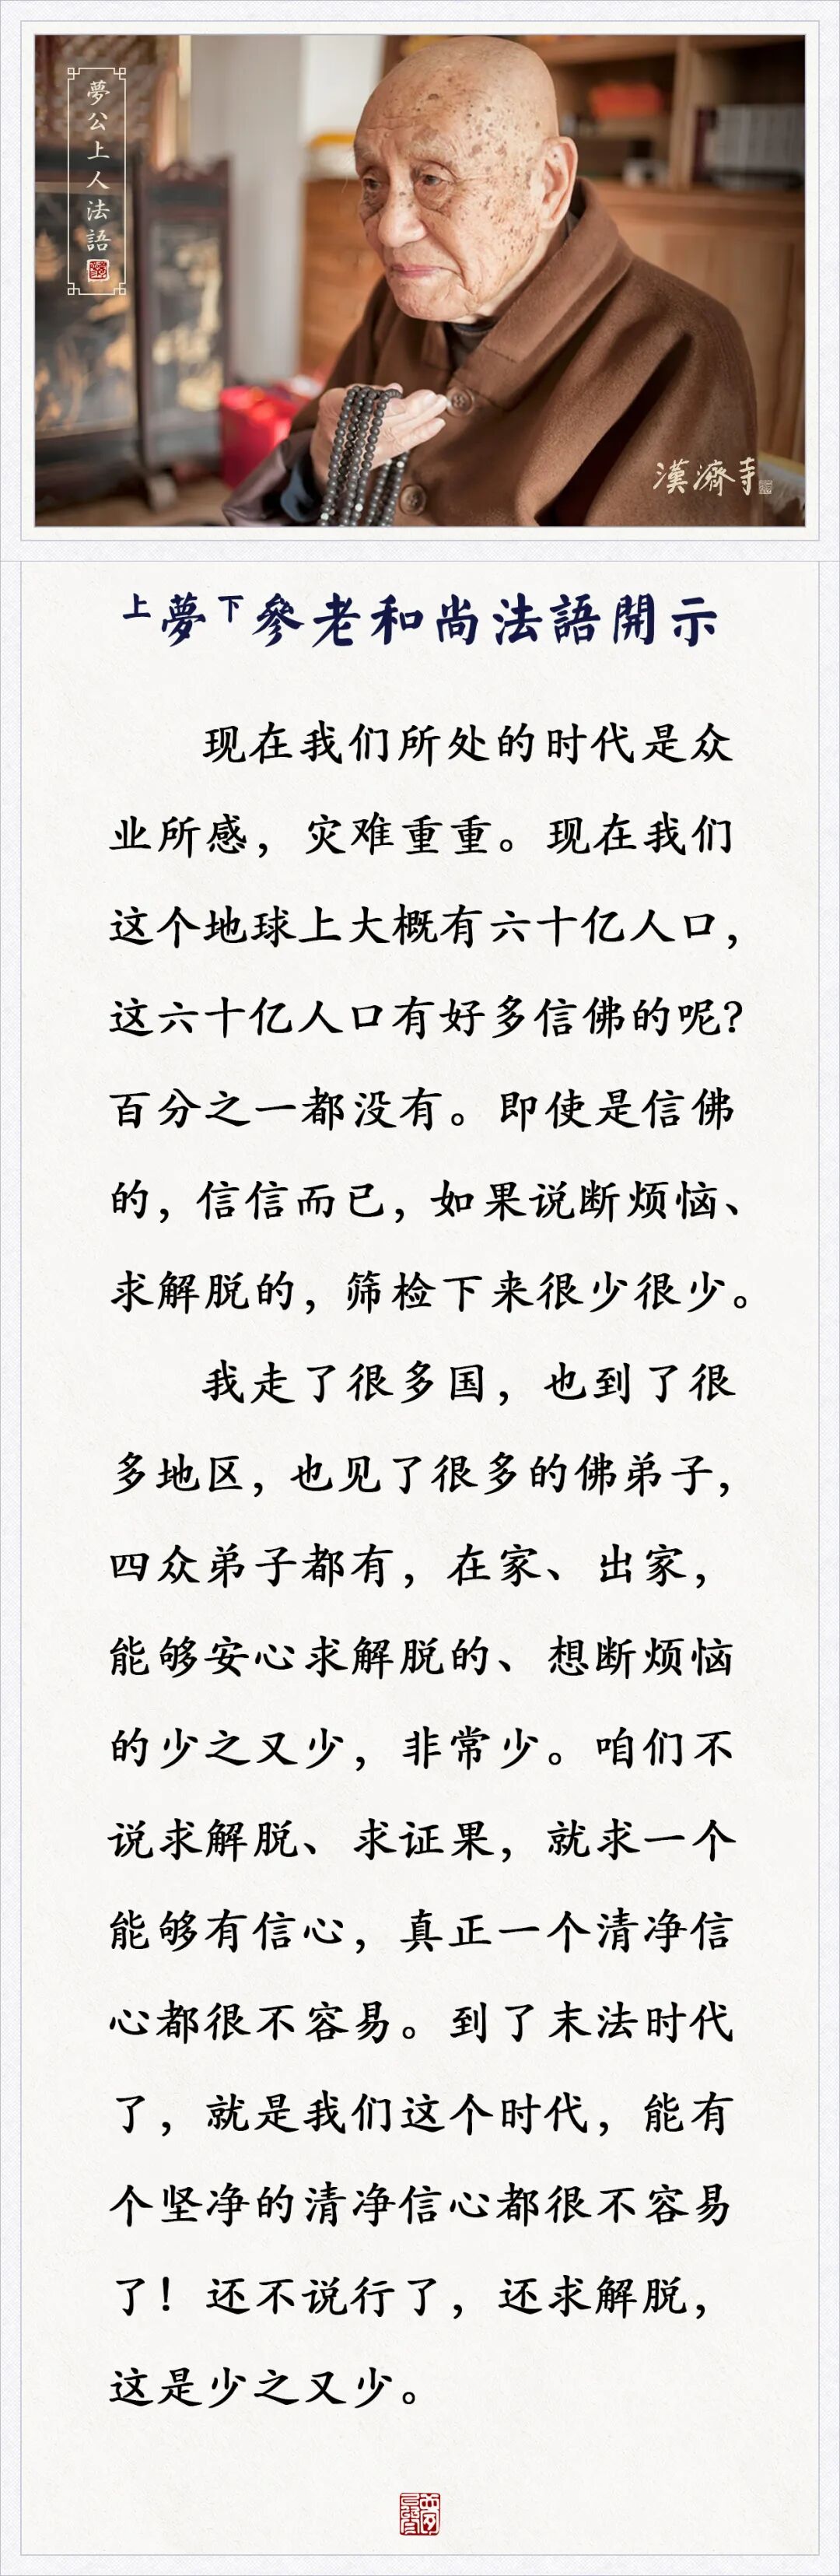 夢公上人法語
漢濟寺
上夢下參老和尚法語開示
现在我们所处的时代是众
业所感，灾难重重。现在我们
这个地球上大概有六十亿人口，
这六十亿人口有好多信佛的呢？
百分之一都没有。即使是信佛
的，信信而已，如果说断烦恼、
求解脱的，筛检下来很少很少。
我走了很多国，也到了很
多地区，也见了很多的佛弟子，
四众弟子都有，在家、出家，
能够安心求解脱的、想断烦恼
的少之又少，非常少。咱们不
说求解脱、求证果，就求一个
能够有信心，真正一个清净信
心都很不容易。到了末法时代
了，就是我们这个时代，能有
个坚净的清净信心都很不容易
了！还不说行了，还求解脱，
这是少之又少。